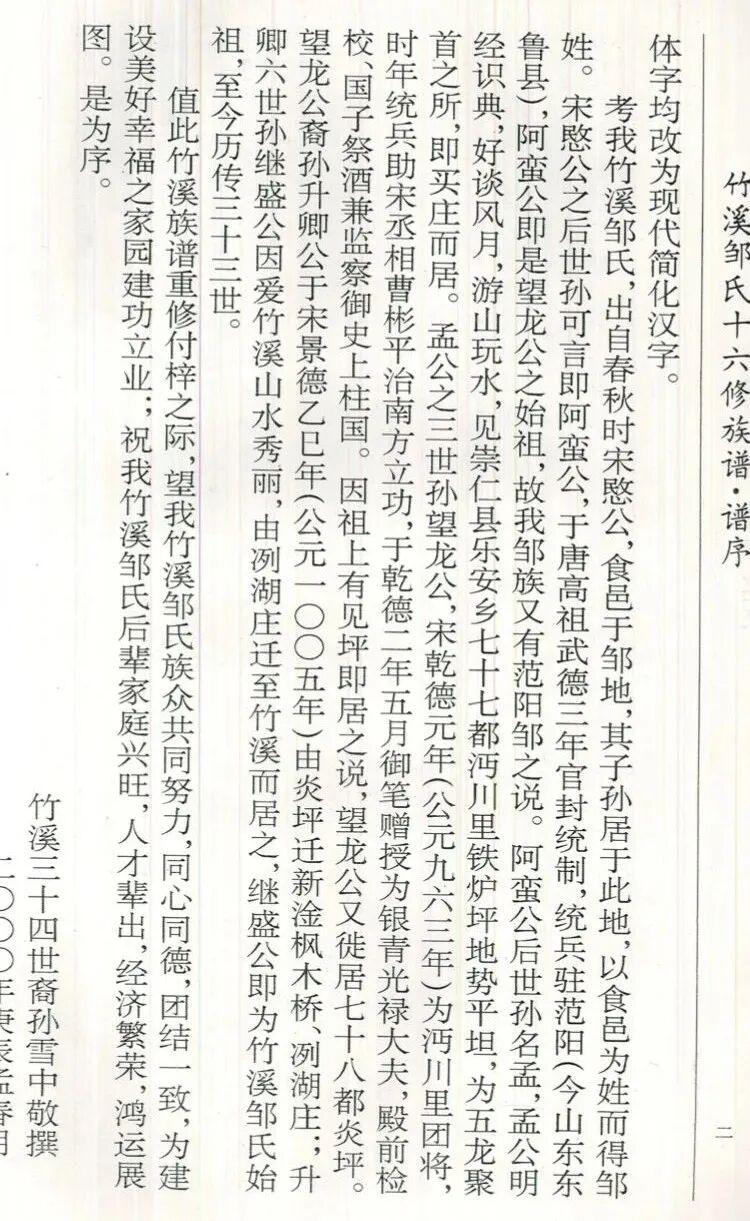 竹溪邹氏十六修族谱·谱序
二
体字均改为现代简化汉字。
考我竹溪邹氏，出自春秋时宋愍公，食邑于邹地，其子孙居于此地，以食邑为姓而得邹
姓。宋愍公之后世孙可言即阿蛮公，于唐高祖武德三年官封统制，统兵驻范阳（今山东东
鲁县），阿蛮公即是望龙公之始祖，故我邹族又有范阳邹之说。阿蛮公后世孙名孟，孟公明
经识典，好谈风月，游山玩水，见崇仁县乐安乡七十七都沔川里铁炉坪地势平坦，为五龙聚
首之所，即买庄而居。孟公之三世孙望龙公，宋乾德元年（公元九六三年）为沔川里团将，
时年统兵助宋丞相曹彬平治南方立功，于乾德二年五月御笔赠授为银青光禄大夫，殿前检
校、国子祭酒兼监察御史上柱国。因祖上有见坪即居之说，望龙公又徙居七十八都炎坪。
望龙公裔孙升卿公于宋景德乙巳年（公元一〇〇五年）由炎坪迁新淦枫木桥、洌湖庄；升
卿六世孙继盛公因爱竹溪山水秀丽，由洌湖庄迁至竹溪而居之，继盛公即为竹溪邹氏始
祖，至今历传三十三世。
值此竹溪族谱重修付梓之际，望我竹溪邹氏族众共同努力，同心同德，团结一致，为建
设美好幸福之家园建功立业；祝我竹溪邹氏后辈家庭兴旺，人才辈出，经济繁荣，鸿运展
图。是为序。
竹溪三十四世裔孙雪中敬撰
二〇〇〇年庚辰孟春月